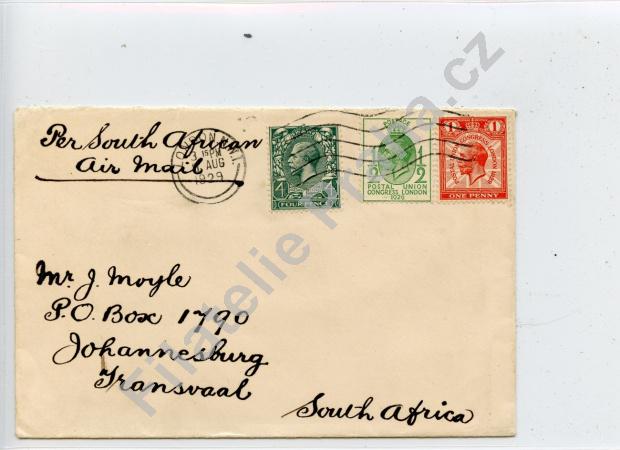 Per South African
Air Mail
LONDON
3 15PM
AUG
1929
FOUR PENCE
POSTAL UNION
CONGRESS LONDON
1929
1 1
POSTAL UNION CONGRESS LONDON 1929
ONE PENNY
Mr. J. Moyle
P.O. Box 1790
Johannesburg
Transvaal
South Africa
Filatelie Praha.cz